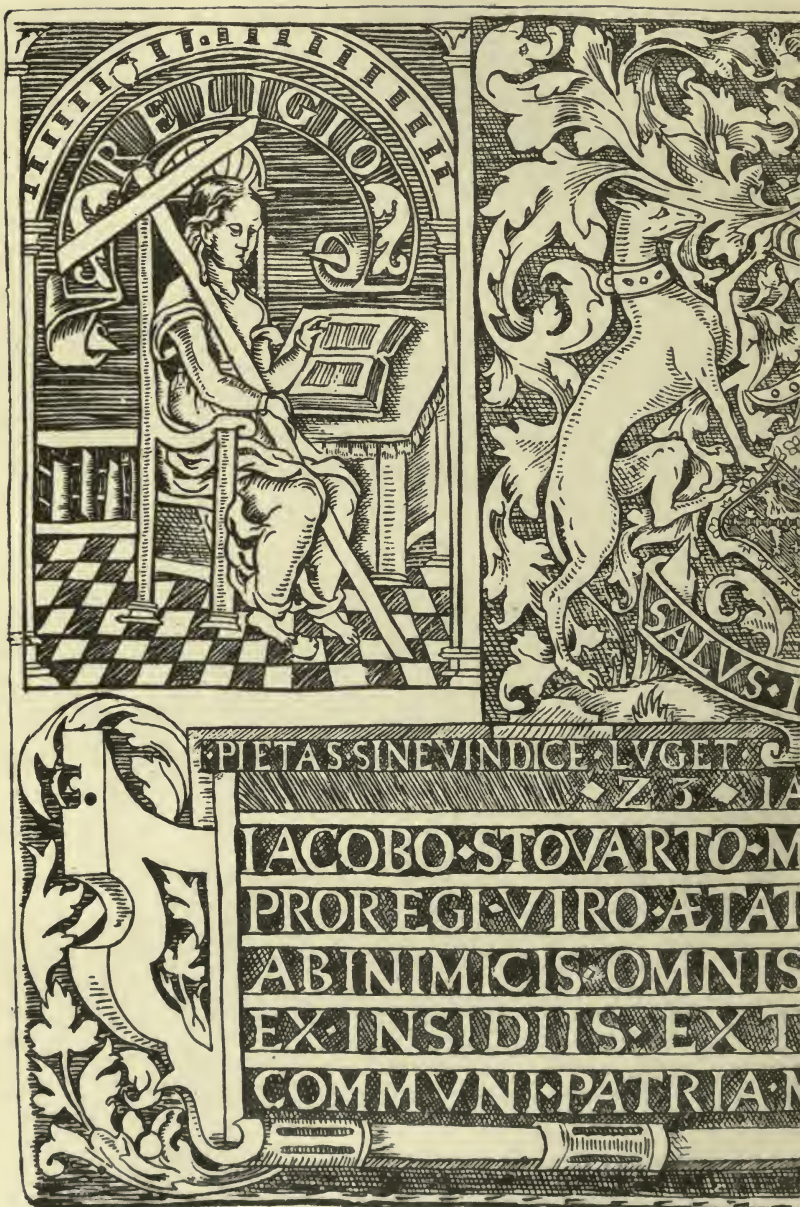 RELIGIO
SALVS · I
· PIETAS SINE VINDICE · LVGET ·
· Z 3 · IA
IACOBO · STOVARTO · M
PROREGI · VIRO · ÆTAT
AB INIMICIS · OMNIS
EX · INSIDIIS · EXT
COMMVNI · PATRIA · M